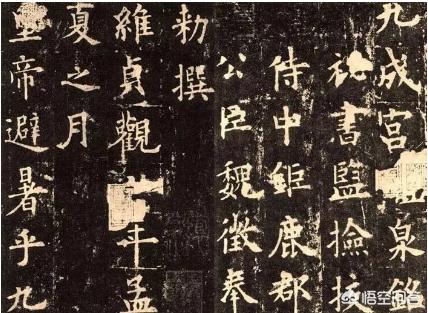 九成宮泉銘
祕書監撿挍
侍中鉅鹿郡
公臣魏徵奉
勑撰
維貞觀年孟
夏之月
皇帝避暑乎九
悟空问答